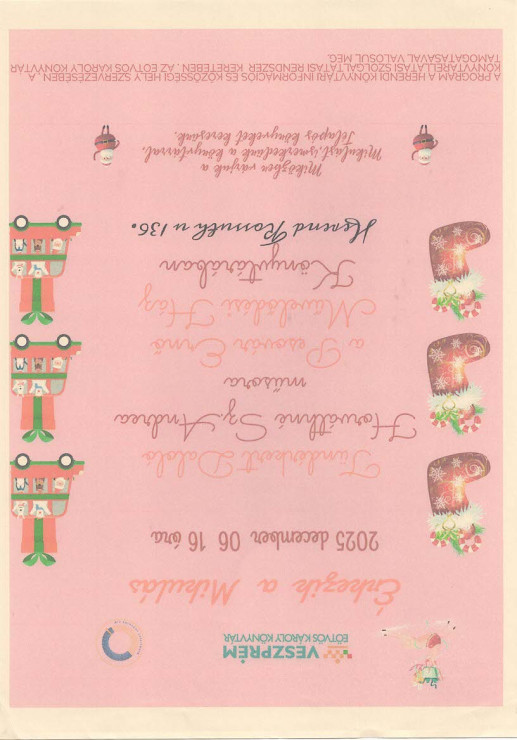 VESZPRÉM
EÖTVÖS KÁROLY KÖNYVTÁR
Érkezik a Mikulás
2025 december 06 16 óra
Tündérkert Daloló
Horváthné Sz. Andrea
műsora
a Pesovár Ernő
Művelődési Ház
Könyvtárában
Herend Kossuth u 136.
Miközben várjuk a
Mikulást, ismerkedünk a könyvtárral,
Télapós könyveket keresünk.
A PROGRAM A HERENDI KÖNYVTÁRI INFORMÁCIÓS ÉS KÖZÖSSÉGI HELY SZERVEZÉSÉBEN , A
KÖNYVTÁRELLÁTÁSI SZOLGÁLTATÁSI RENDSZER KERETÉBEN , AZ EÖTVÖS KÁROLY KÖNYVTÁR
TÁMOGATÁSÁVAL VALÓSUL MEG.